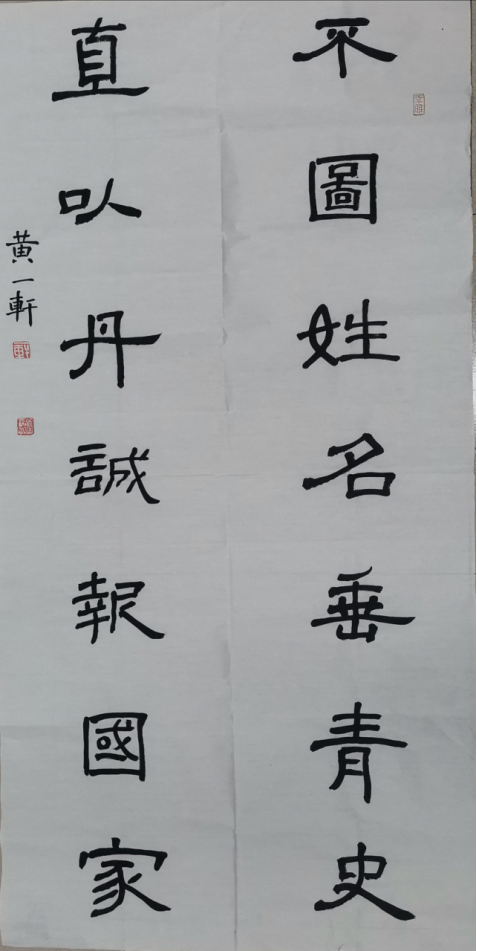 不圖姓名垂青史
直以丹誠報國家
黄一軒